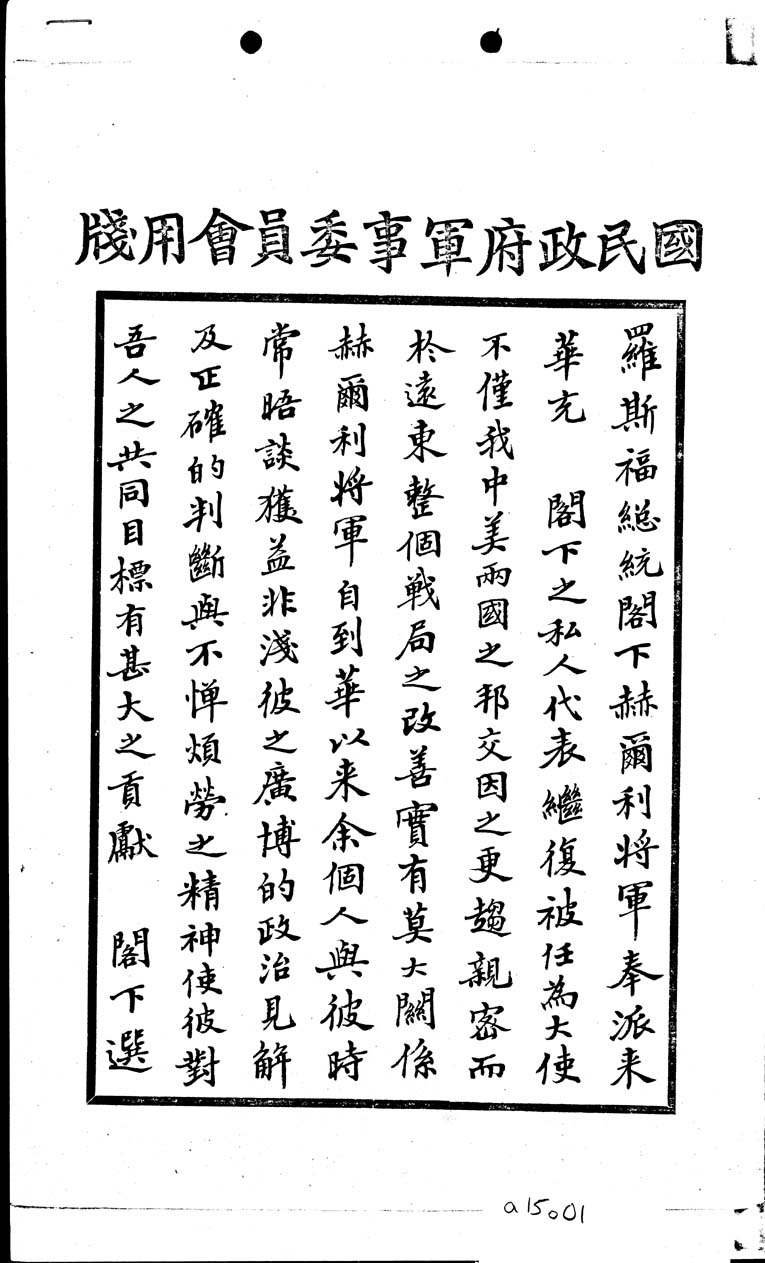 國民政府軍事委員會用牋
羅斯福總統閣下赫爾利將軍奉派来
華充　閣下之私人代表繼復被任為大使
不僅我中美兩國之邦交因之更趨親密而
於遠東整個戰局之改善實有莫大關係
赫爾利將軍自到華以来余個人與彼時
常晤談獲益非淺彼之廣博的政治見解
及正確的判斷與不惮煩勞之精神使彼對
吾人之共同目標有甚大之貢獻　閣下選
a15o01